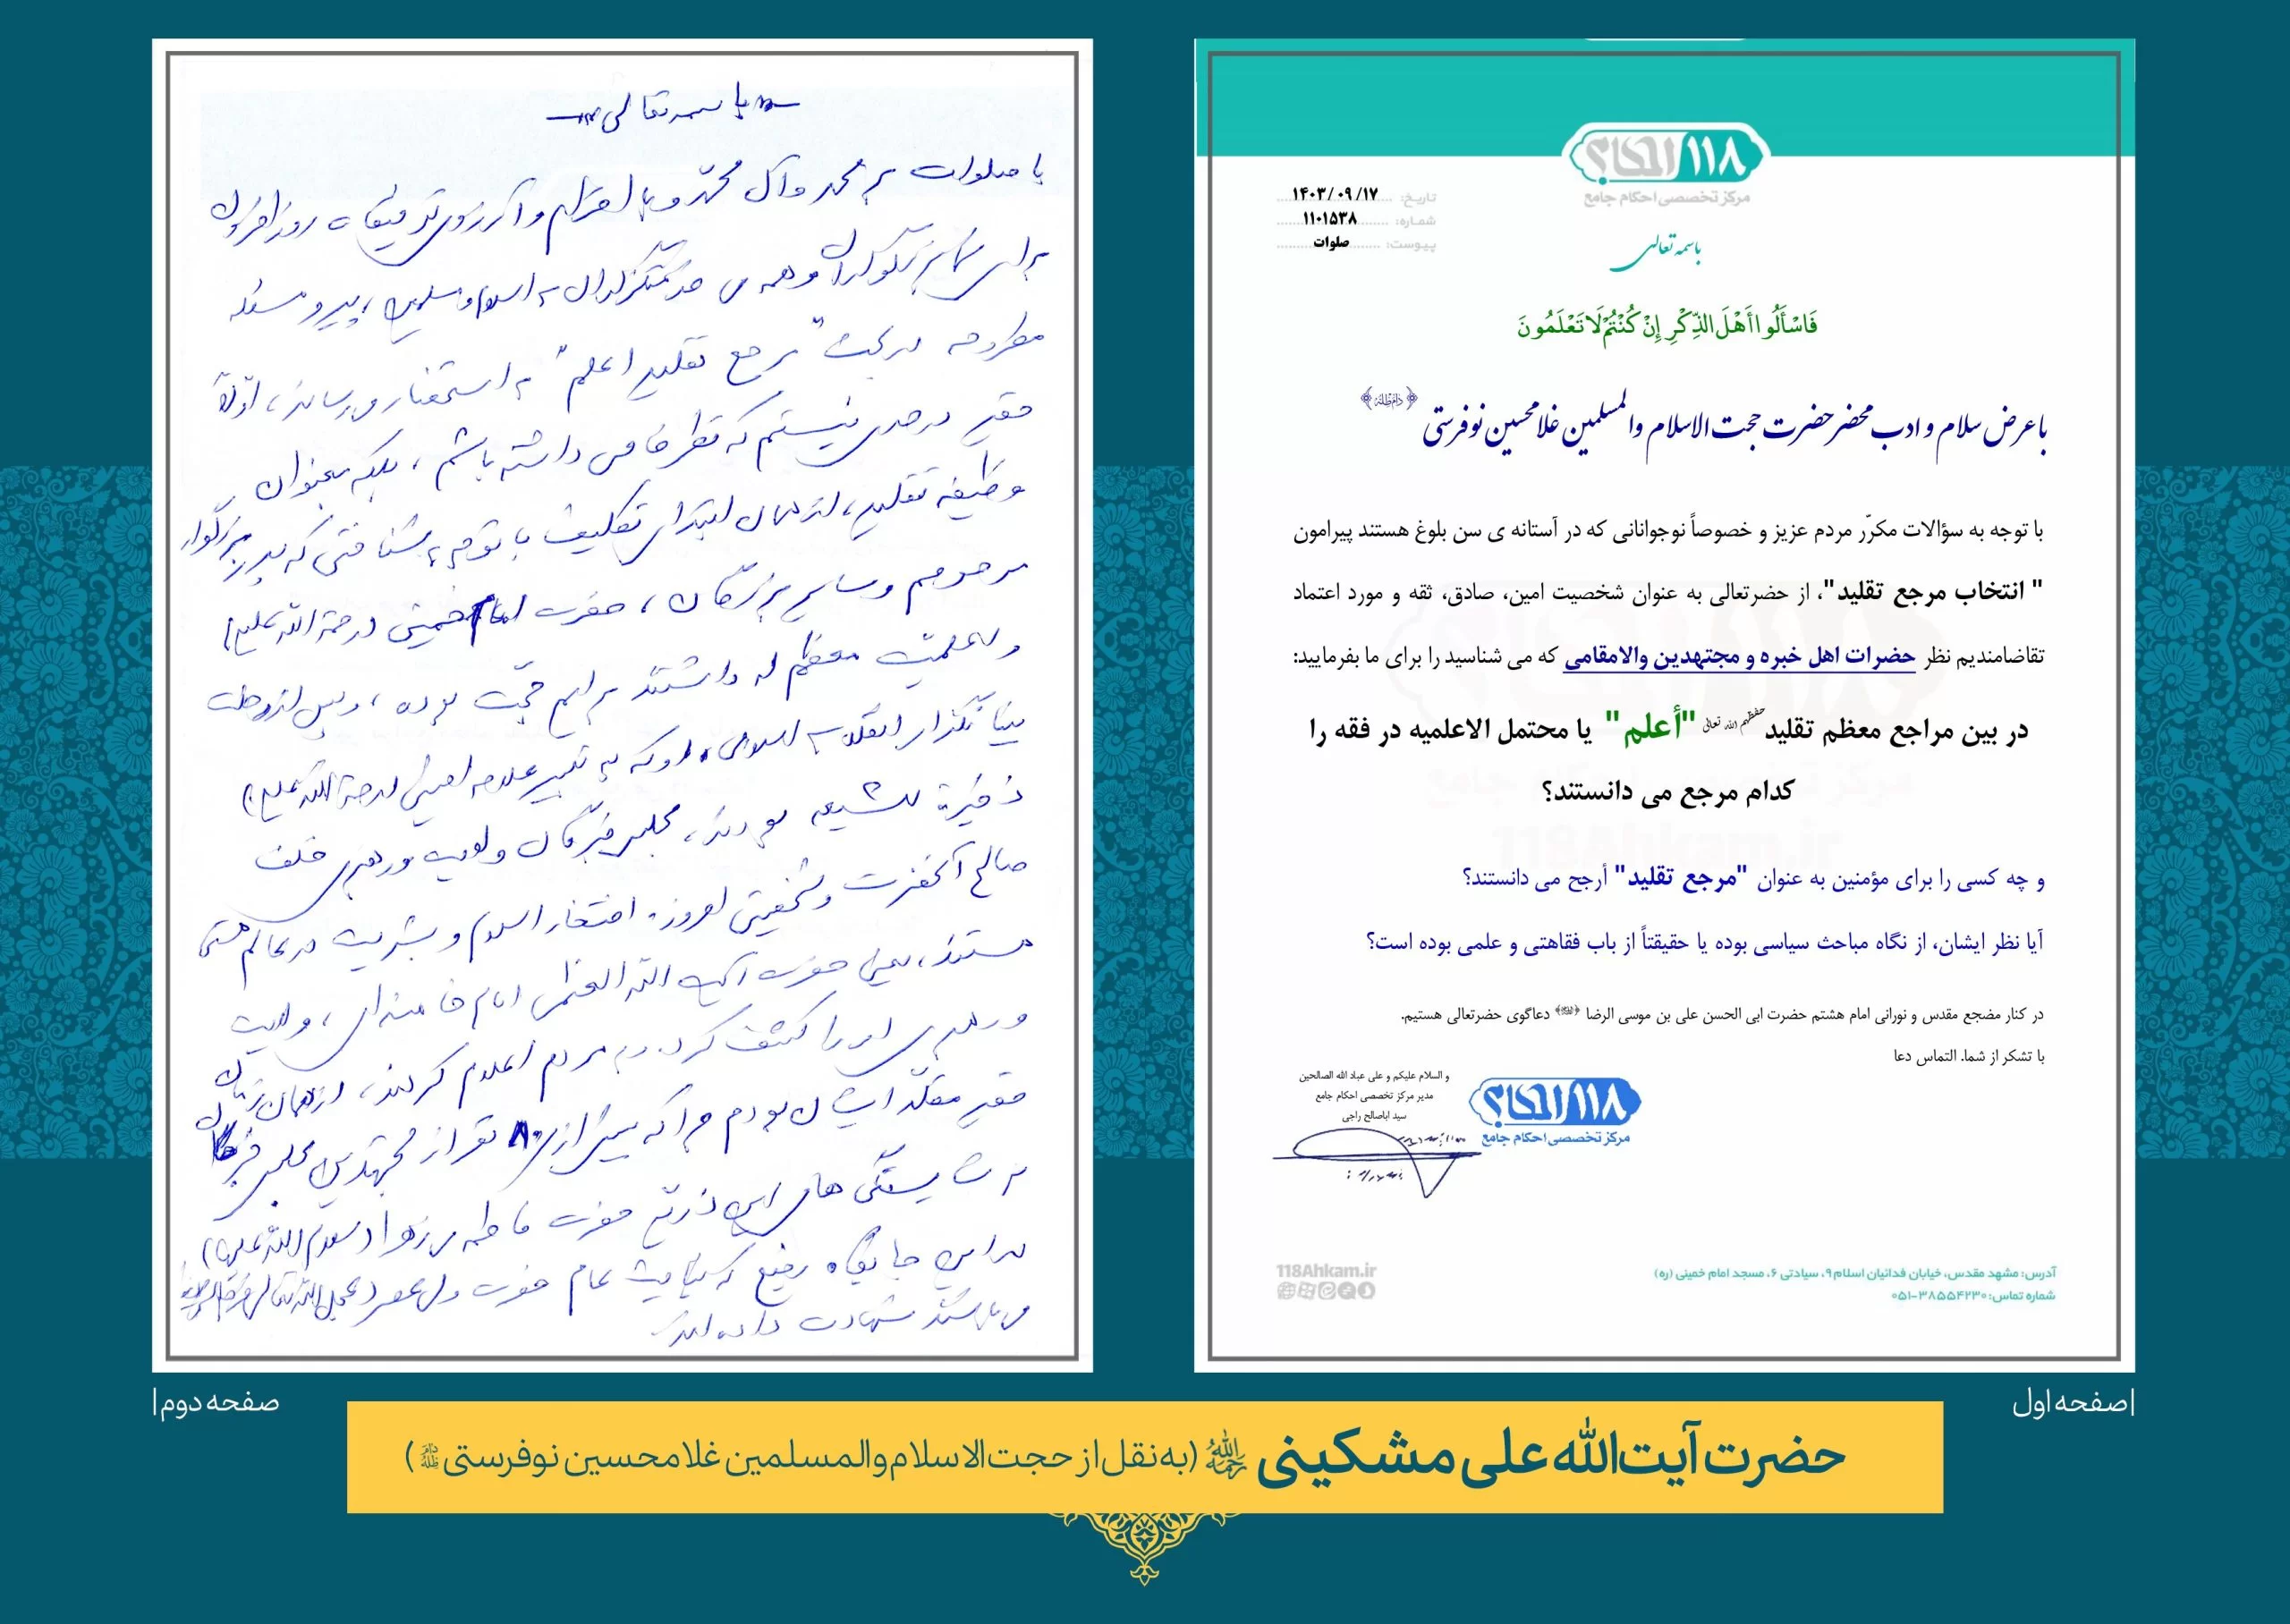 ۱۱۸ احکام؟
مرکز تخصصی احکام جامع
تاریخ: ۱۴۰۳/۰۹/۱۷
شماره: ۱۱۰۱۵۳۸
پیوست: صلوات
باسمه تعالی
فَاسْأَلُوا أَهْلَ الذِّكْرِ إِنْ كُنْتُمْ لَا تَعْلَمُونَ
با عرض سلام و ادب محضر حضرت حجت الاسلام والمسلمین غلامحسین نوفرستی ﴿دامَ ظلّه﴾
با توجه به سؤالات مکرّر مردم عزیز و خصوصاً نوجوانانی که در آستانه ی سن بلوغ هستند پیرامون
" انتخاب مرجع تقلید"، از حضرتعالی به عنوان شخصیت امین، صادق، ثقه و مورد اعتماد
تقاضامندیم نظر حضرات اهل خبره و مجتهدین والامقامی که می شناسید را برای ما بفرمایید:
در بین مراجع معظم تقلید حفظهم الله تعالی "أعلم" یا محتمل الاعلمیه در فقه را
کدام مرجع می دانستند؟
و چه کسی را برای مؤمنین به عنوان "مرجع تقلید" أرجح می دانستند؟
آیا نظر ایشان، از نگاه مباحث سیاسی بوده یا حقیقتاً از باب فقاهتی و علمی بوده است؟
در کنار مضجع مقدس و نورانی امام هشتم حضرت ابی الحسن علی بن موسی الرضا دعاگوی حضرتعالی هستیم.
با تشکر از شما. التماس دعا
و السلام علیکم و علی عباد الله الصالحین
مدیر مرکز تخصصی احکام جامع
سید اباصالح راجی
۱۱۸ احکام؟
مرکز تخصصی احکام جامع
118Ahkam.ir
آدرس: مشهد مقدس، خیابان فدائیان اسلام ۹، سیادتی ۶، مسجد امام خمینی (ره)
شماره تماس: ۳۸۵۵۴۲۳۰-۰۵۱
مرکز تخصصی احکام جامع
118Ahkam.ir
صفحه اول
باسمه تعالی
با صلوات بر محمد و آل محمّد و با احترام و آرزوی توفیقات روزافزون
برای شما بزرگواران و همه ی خدمتگزاران به اسلام و مسلمین، پیرو مسئله
مطروحه در بحث "مرجع تقلید اعلم" به استحضار می رساند، اوّلاً
حقیر در حدی نیستم که نظر خاصی داشته باشم، بلکه بعنوان
وظیفه تقلید، از همان ابتدای تکلیف با توجه به شناختی که پدر بزرگوار
مرحومم و سایر بزرگان، حضرت امام خمینی (رحمة الله علیه)
و اعلمیت معظم له داشتند برایم حجّت بوده، و پس از رحلت
بنیانگذار انقلاب اسلامی، او که به تعبیر علامه امینی (رحمة الله علیه)
ذخیرة للشیعه بودند، مجلس خبرگان ولایت و رهبری خلف
صالح آنحضرت و شخصیتی امروزه افتخار اسلام و بشریت در عالم هستی
هستند، یعنی حضرت آیت الله العظمی امام خامنه ای، ولایت
و رهبری او را کشف کرده و به مردم اعلام کردند، از همان زمان
حقیر مقلّد ایشان بودم چرا که بیش از ۸۰ نفر از مجتهدین مجلس خبرگان
به شایستگی های این ذریّه حضرت فاطمه ی زهرا (سلام الله علیها)
در این جایگاه رفیع که نیابت عام حضرت ولی عصر (عجل الله تعالی فرجه الشریف)
می باشد شهادت داده اند.
صفحه دوم
حضرت آیت‌الله علی مشکینی (به نقل از حجت‌الاسلام‌والمسلمین غلامحسین نوفرستی)